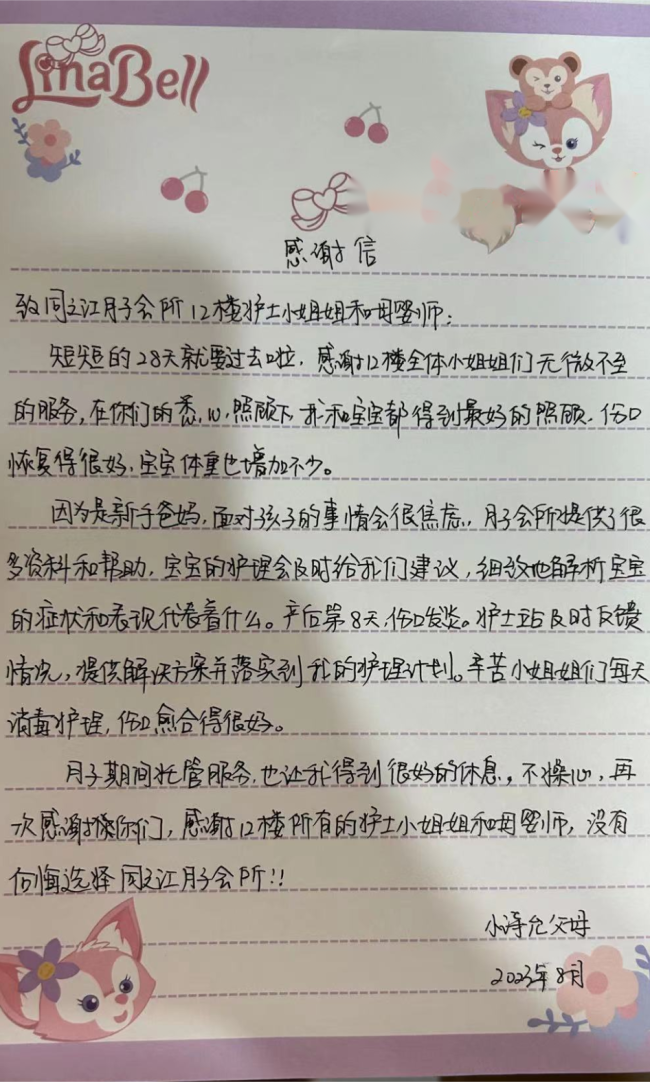 LinaBell
感谢信
致同之江月子会所12楼护士小姐姐和母婴师:
短短的28天就要过去啦,感谢12楼全体小姐姐们无微不至
的服务,在你们的悉心照顾下我和宝宝都得到最好的照顾,伤口
恢复得很好,宝宝体重也增加不少。
因为是新手爸妈,面对孩子的事情会很焦虑,月子会所提供了很
多资料和帮助,宝宝的护理会及时给我们建议,细致地解析宝宝
的症状和表现代表着什么。产后第8天伤口发炎。护士站及时反馈
情况,提供解决方案并落实到我的护理计划。辛苦小姐姐们每天
消毒护理,伤口愈合得很好。
月子期间托管服务,也让我得到很好的休息,不操心,再
次感谢你们,感谢12楼所有的护士小姐姐和母婴师,没有
后悔选择同之江月子会所!!
小诗允父母
2023年8月